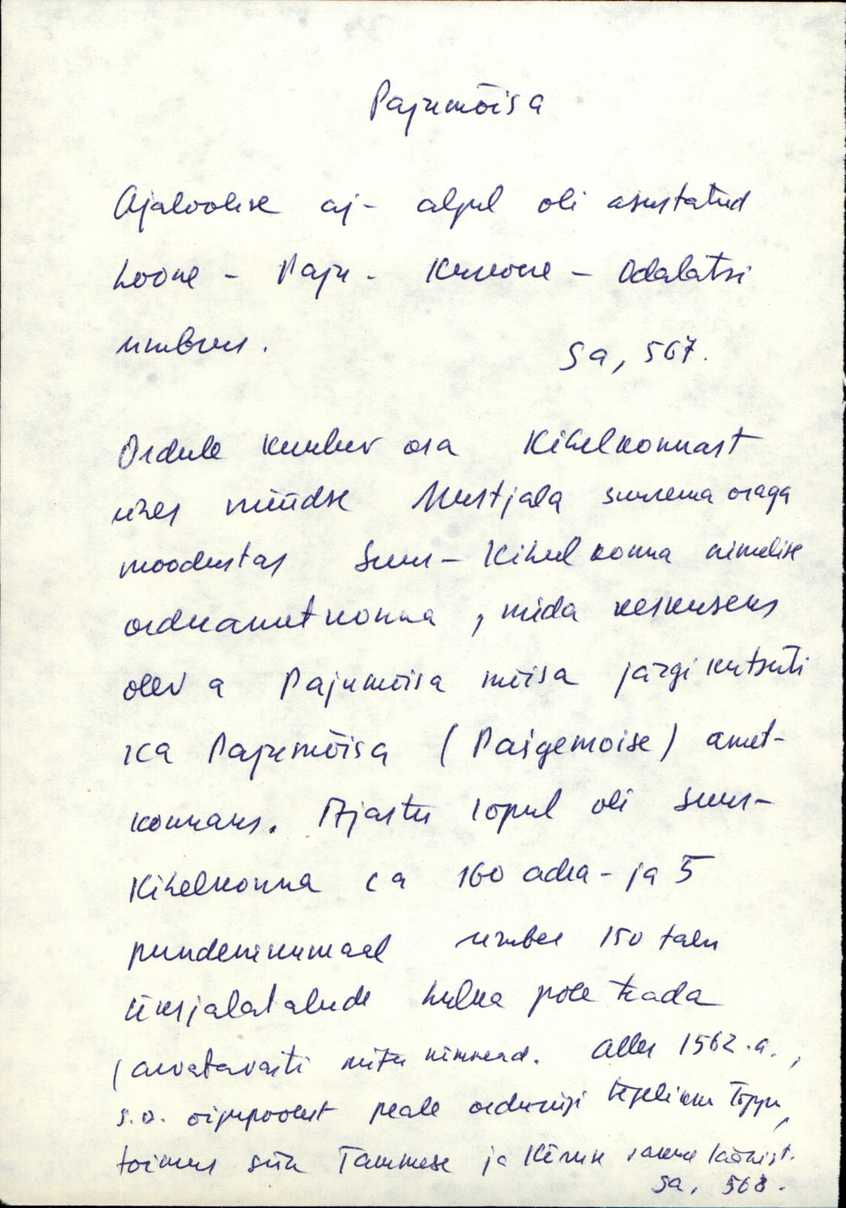 Pajumõisa
Ajaloolise aj- algul oli asustatud
Loone - Paju - - Odalätsi
ümbrus.
Sa, 567.
Ordule kuuluv osa Kihelkonnast
ühes nüüdse Mustjala suurema osaga
moodustas Suur-Kihelkonna nimelise
orduametkonna, mida keskuseks
oleva Pajumõisa mõisa järgi kutsuti
ka Pajumõisa (Paigemoise) amet-
konnaks. Ajastu lõpul oli Suur-
Kihelkonna ca 160 adra- ja 5
ümber 150 talu
üksjalatalude hulka pole teada
(arvatavasti mitukümmend. Alles 1562.a.,
s.o. õiguspoolest peale orduriigi tegelikku lõppu,
toimus siin Tammese ja Kõruse
Sa, 568.